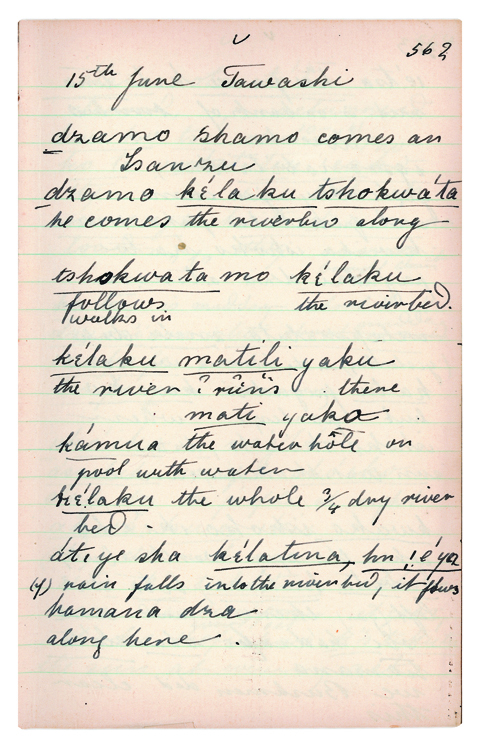 562
15th June Tawashi
dzamo shamo comes an
Isanzu
dzamo kélaku tshokwáta
he comes the riverbed along
tshokwata mo kélaku
follows the riverbed.
walks in
kélaku matili yaku
the river ? runs there
mati yako
kámua the water hole or
pool with water
kélaku the whole ¾ dry river
bed -
átiye sha kélatina, hn ! éya
(if) rain falls into the riverbed, it flows
hamana dza
along here .